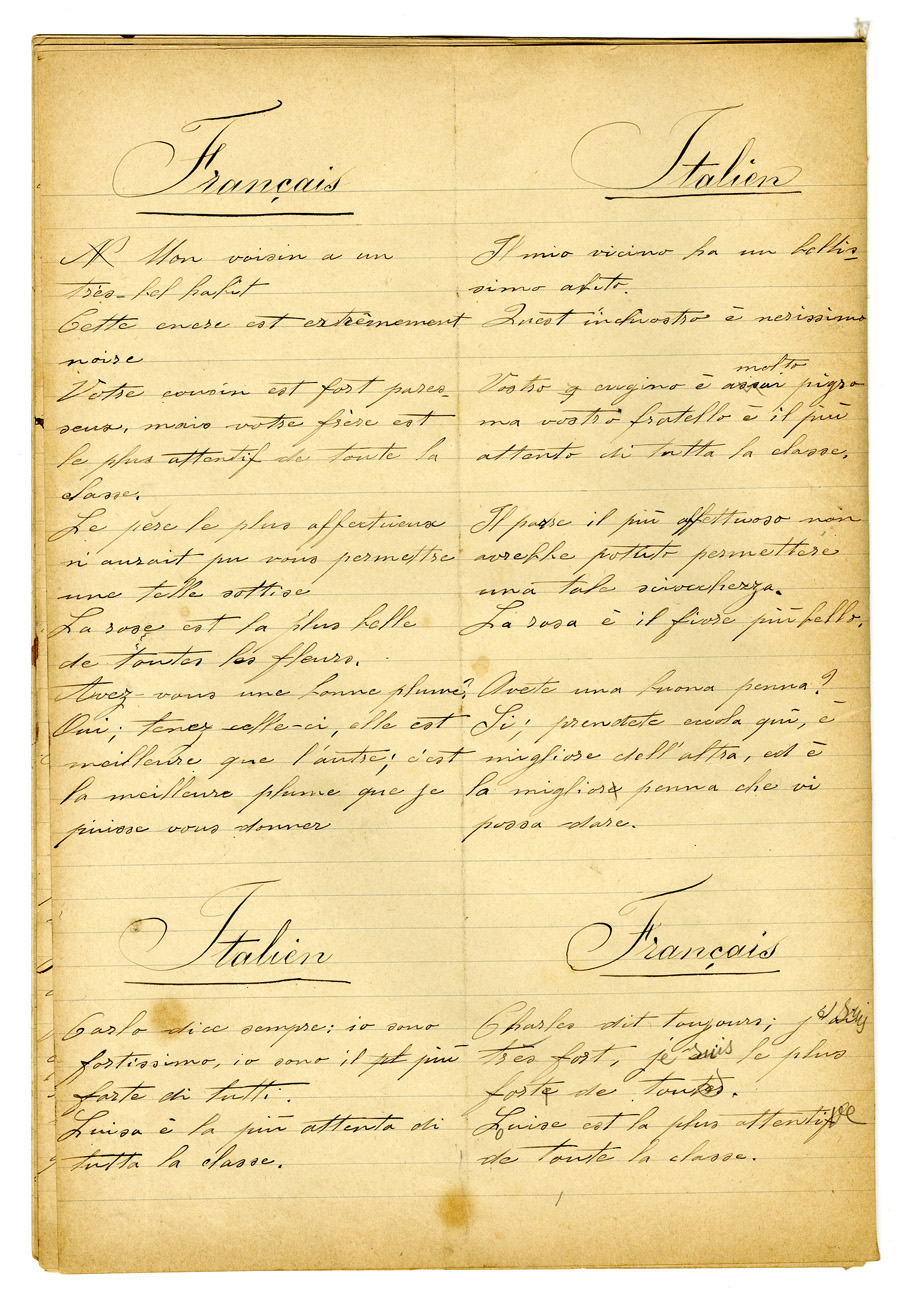 Français
Mon voisin a un
très-bel habit
Cette encre est extrêmement
noire
Votre cousin est fort pares-
seux, mais votre frère est
le plus attentif de toute la
classe.
Le père le plus affectueux
n'aurait pu vous permettre
une telle sottise
La rose est la plus belle
de toutes les fleurs.
Avez-vous une bonne plume?
Oui; tenez celle-ci, elle est
meilleure que l'autre; c'est
la meilleure plume que je
puisse vous donner
Italien
Il mio vicino ha un bellis-
simo abito.
Quest inchiostro è nerissimo
molto
Vostro cugino è assai pigro
ma vostro fratello è il più
attento di tutta la classe.
Il padre il più affettuoso non
avrebbe potuto permettere
una tale sciocchezza.
La rosa è il fiore più bello.
Avete una buona penna?
Si; prendete eccola qui, è
migliore dell'altra, ed è
la migliore penna che vi
possa dare.
Italien
Carlo dice sempre: io sono
fortissimo, io sono il pl più
forte di tutti.
Luisa è la più attenta di
tutta la classe.
Français
Charles dit toujours; je suis
très fort, je suis le plus
forte de toutes.
Louise est la plus attentive
de toute la classe.